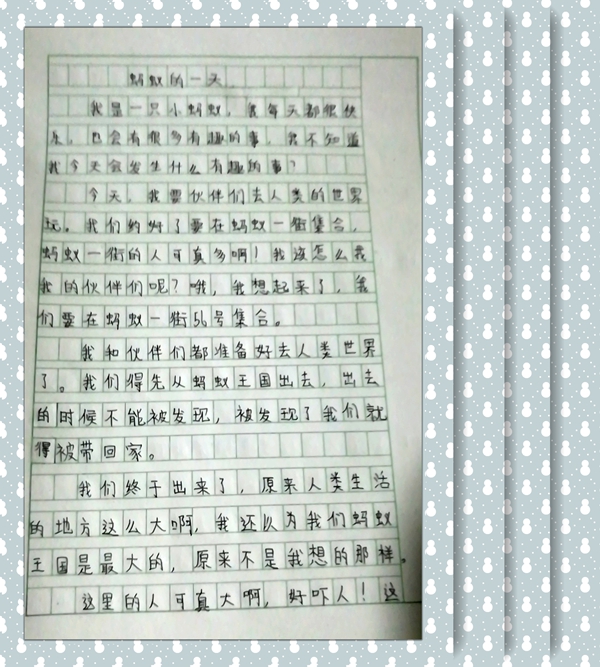 蚂蚁的一天
我是一只小蚂蚁，我每天都很快
乐，也会有很多有趣的事，我不知道
我今天会发生什么有趣的事？
今天，我要伙伴们去人类的世界
玩。我们约好了要在蚂蚁一街集合，
蚂蚁一街的人可真多啊！我该怎么找
我的伙伴们呢？哦，我想起来了，我
们要在蚂蚁一街56号集合。
我和伙伴们都准备好去人类世界
了。我们得先从蚂蚁王国出去，出去
的时候不能被发现，被发现了我们就
得被带回家。
我们终于出来了，原来人类生活
的地方这么大啊，我还以为我们蚂蚁
王国是最大的，原来不是我想的那样。
这里的人可真大啊，好吓人！这